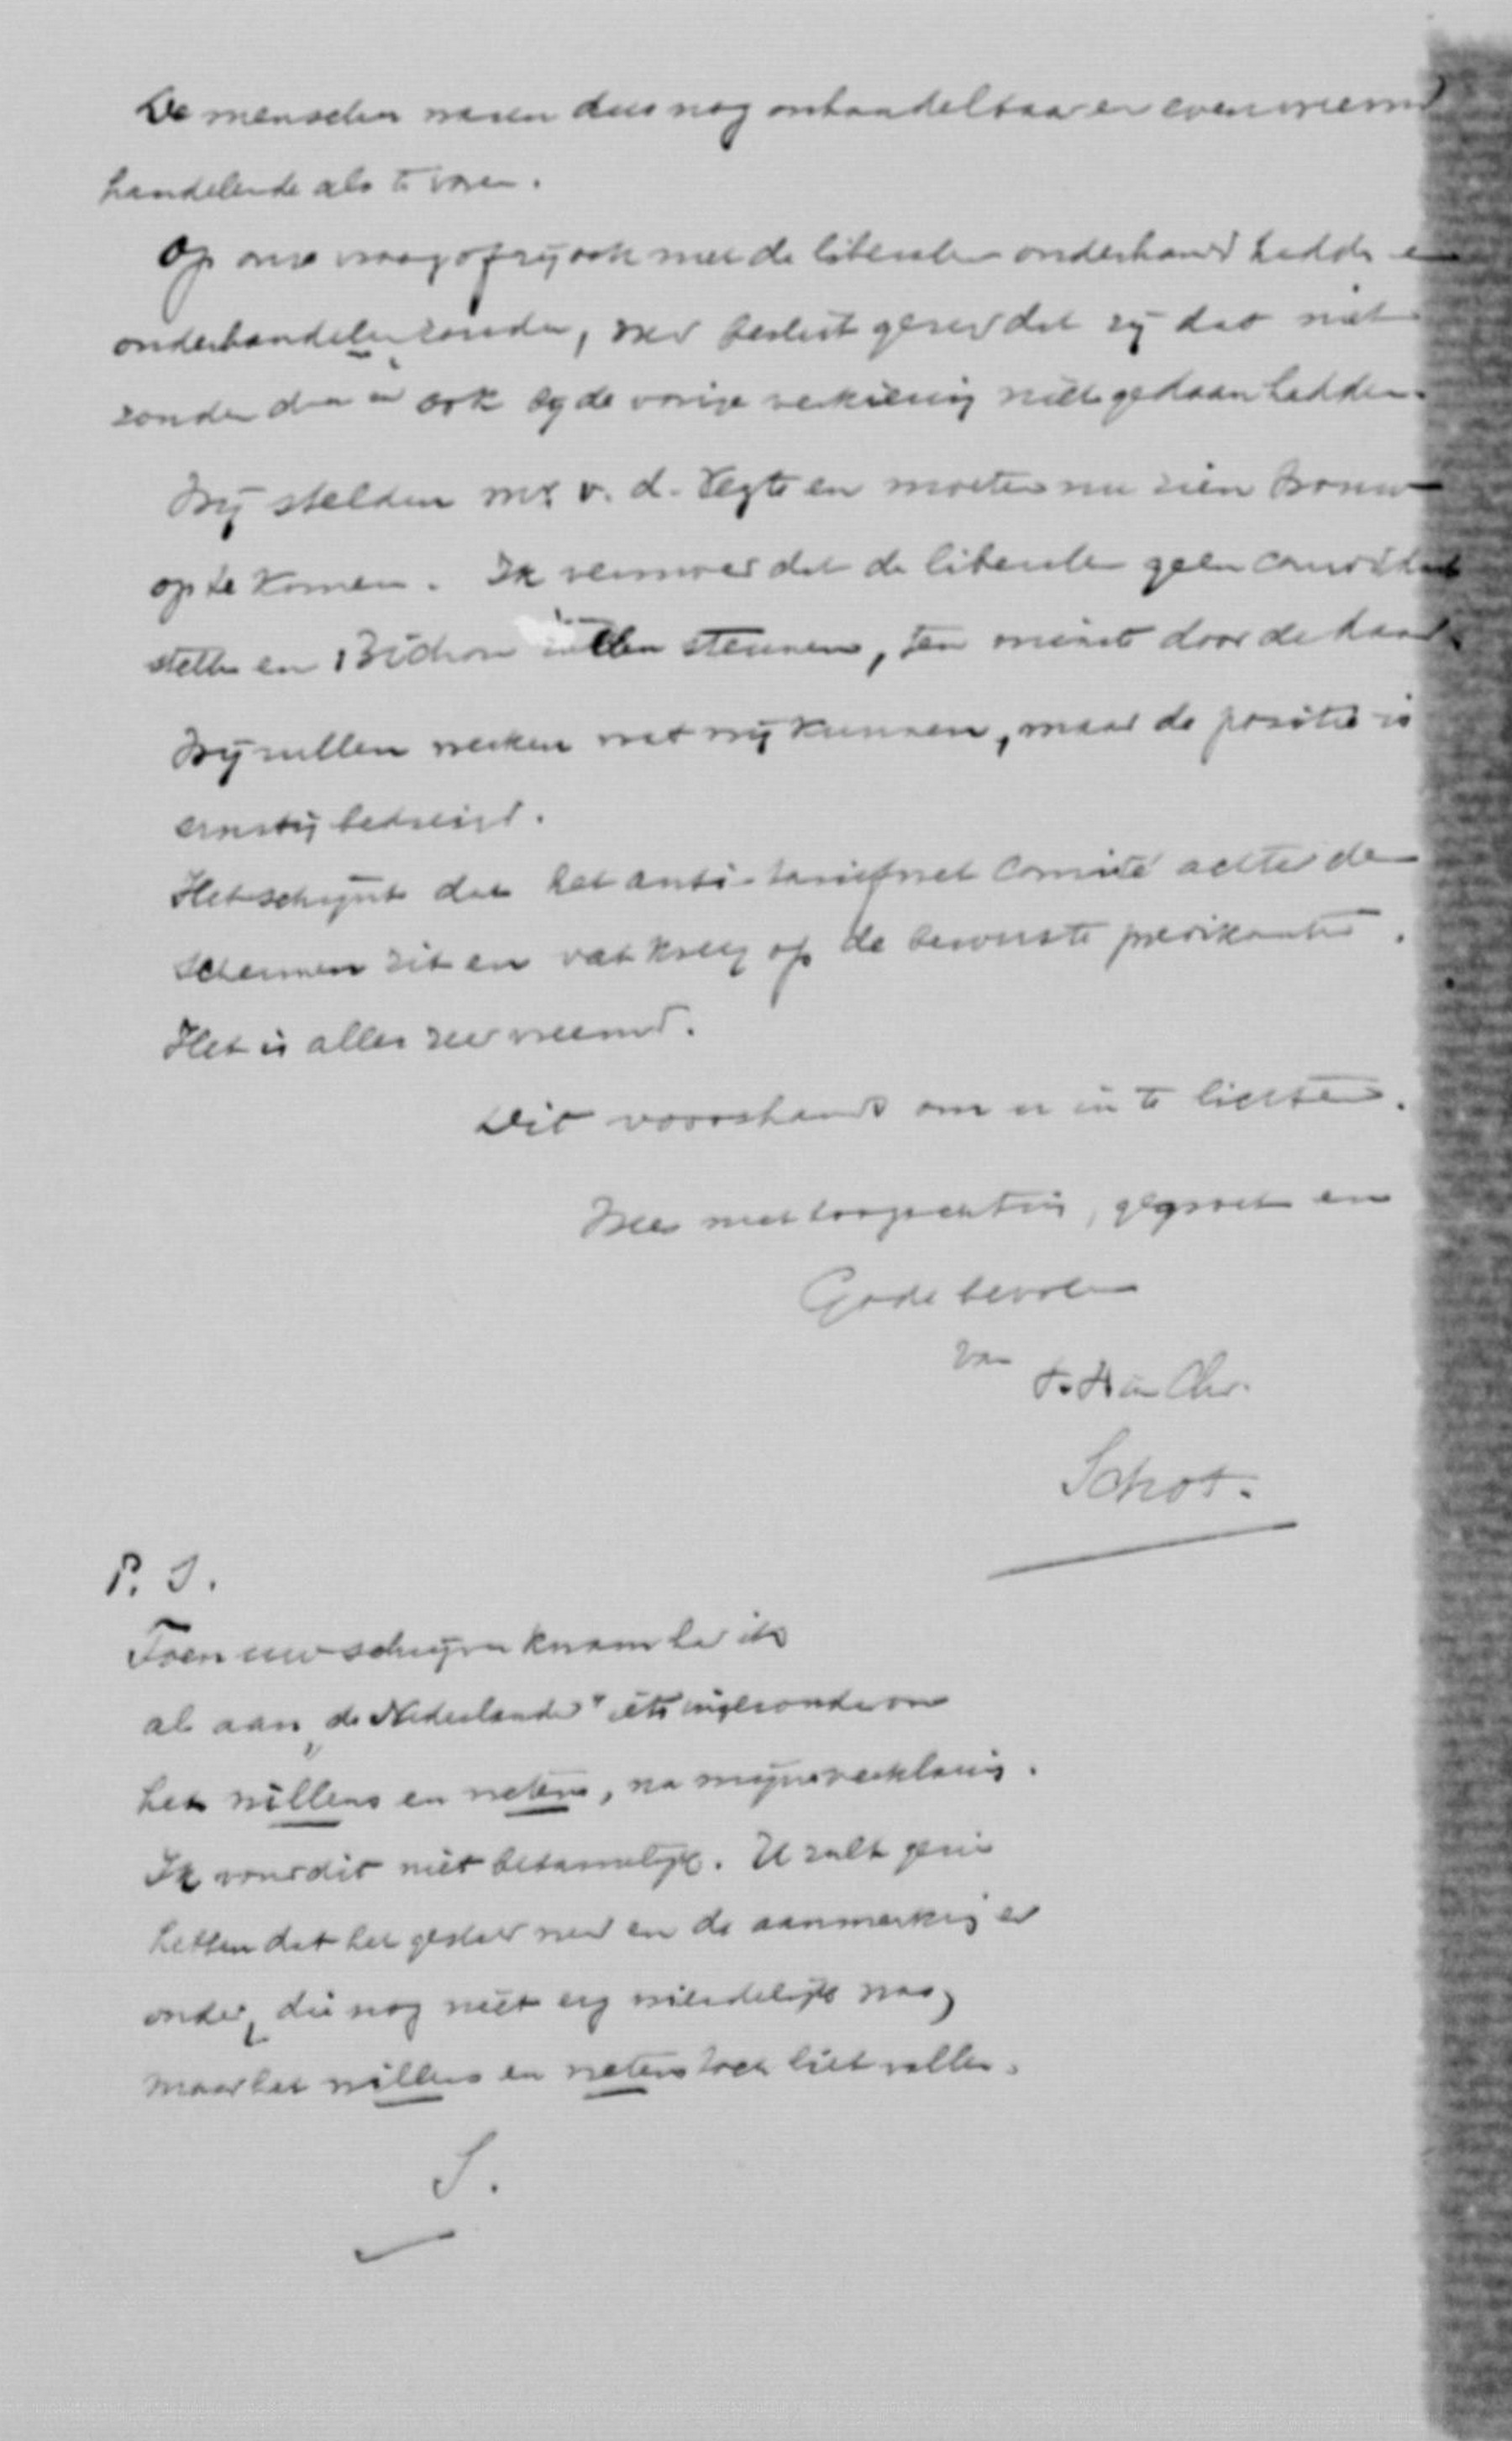 De menschen waren dus nog onhandelbaar en even vreemd
handelende als te voren.
Op onze vraag of zij ook met de liberalen onderhand hadden en
onderhandelen zouden, werd beslist gezegd dat zij dat niet
zouden doen en ook bij de vorige verkiezing niet gedaan hadden.
Wij stelden mr. v. d. Vegte en moeten nu zien er
op te komen. Ik vermoed dat de liberalen geen candidaat
stellen en Bichon zullen steunen, ten minste door de hand
Wij zullen werken wat wij kunnen, maar de positie is
ernstig bedreigd.
Het schijnt dat het anti-tariefwet Comité achter de
schermen zit en vat kreeg op de bewuste predikanten.
Het is alles zeer vreemd.
Dit voorshands om u in te lichten.
Wees met hoogachting, gegroet en
Gode bevolen
van
Schot.
P. S.
Toen uw schrijven kwam had ik
al aan „de Nederlander" iets ingezonden over
het willens en wetens, na mijne verklaring.
Ik vond dit niet betamelijk. U zult gezien
hebben dat het geplaatst werd en de aanmerking er
onder, die nog niet erg vriendelijk was,
maar het willens en wetens toch liet vallen.
S.